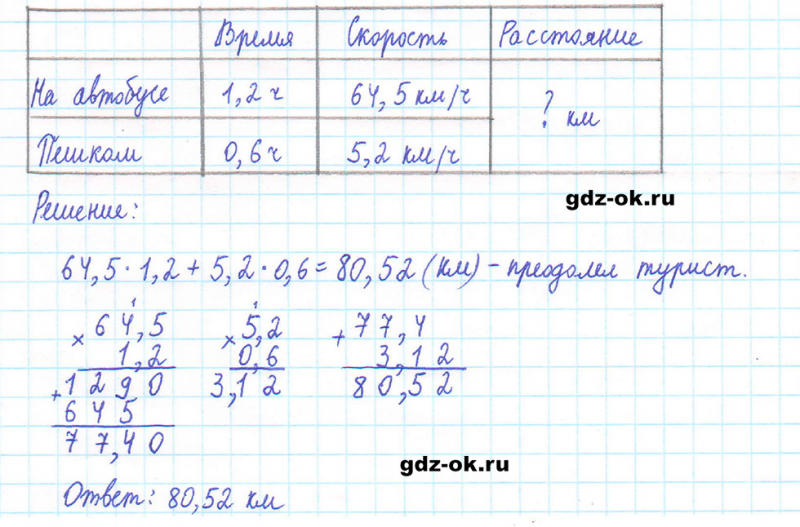 Время Скорость Расстояние
На автобусе 1,2 ч 64,5 км/ч
? км
Пешком 0,6 ч 5,2 км/ч
gdz-ok.ru
Решение:
64,5 · 1,2 + 5,2 · 0,6 = 80,52 (км) - преодолел турист.
× 64,5 × 5,2 + 77,4
1,2 0,6 3,12
+ 1290 3,12 80,52
645
77,40
gdz-ok.ru
Ответ: 80,52 км